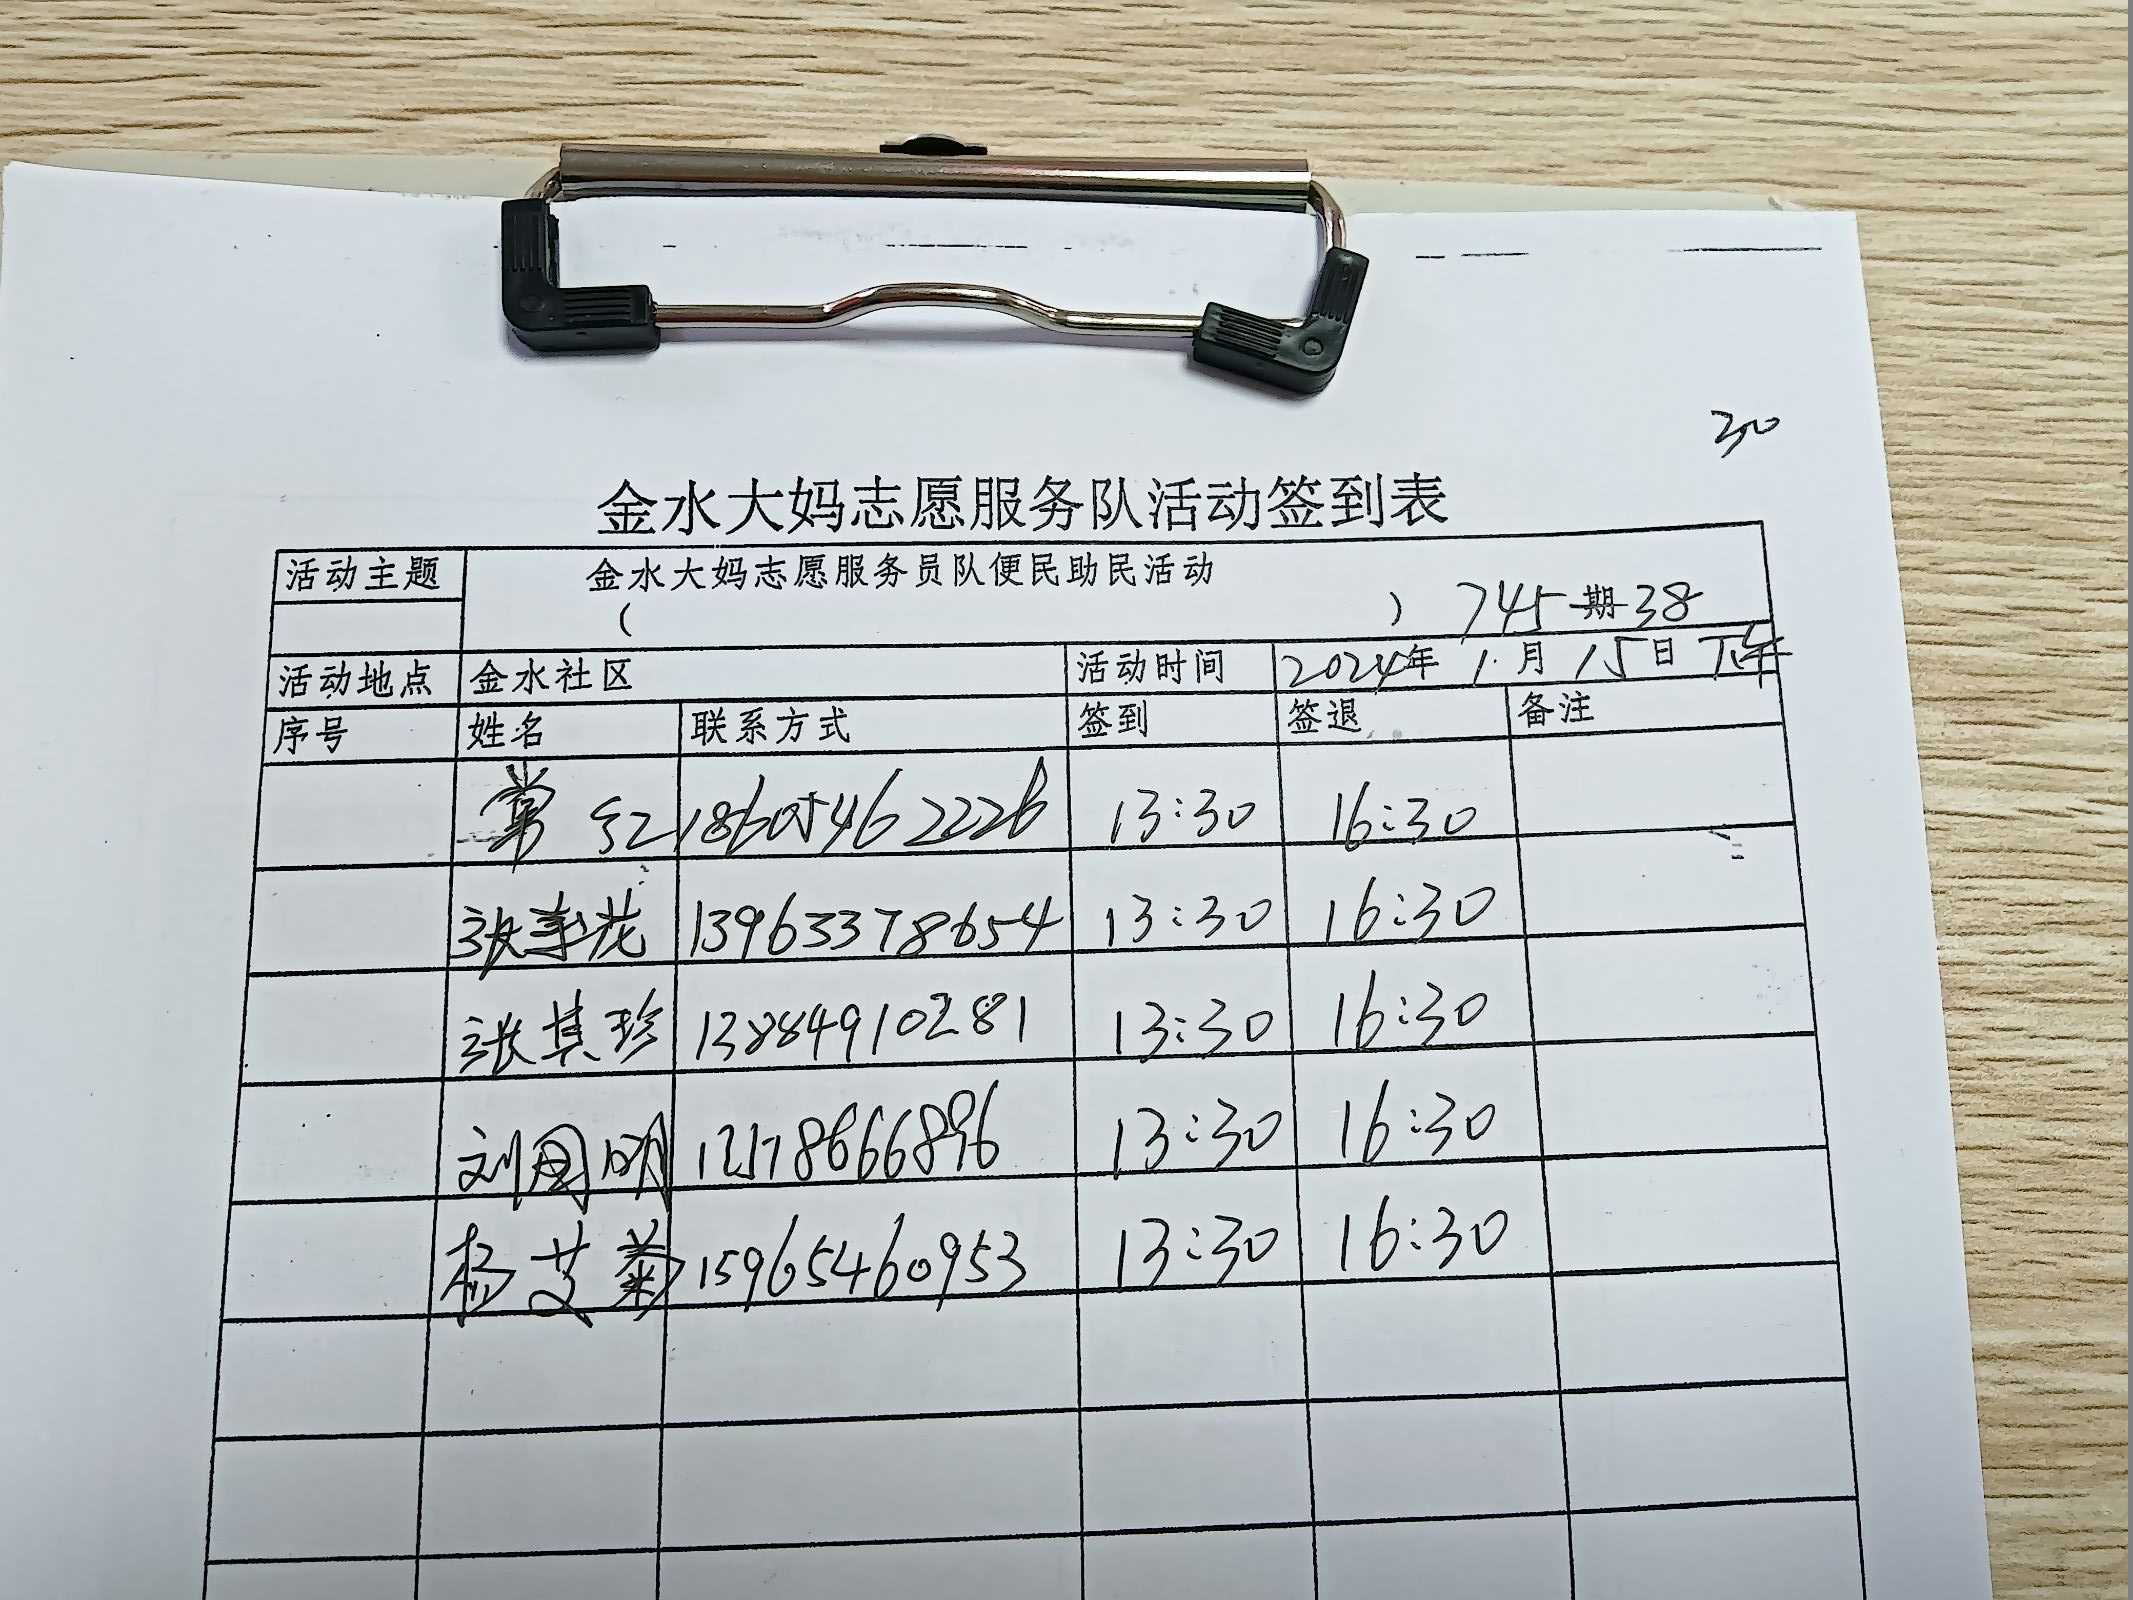 30
金水大妈志愿服务队活动签到表
活动主题 金水大妈志愿服务员队便民助民活动
( ) 745期38
活动地点 金水社区 活动时间 2024年1月15日下午
序号 姓名 联系方式 签到 签退 备注
常红 18605462226 13:30 16:30
张秀花 13963378654 13:30 16:30
张其珍 13884910281 13:30 16:30
刘国明 13:30 16:30
杨艾菊 15965460953 13:30 16:30